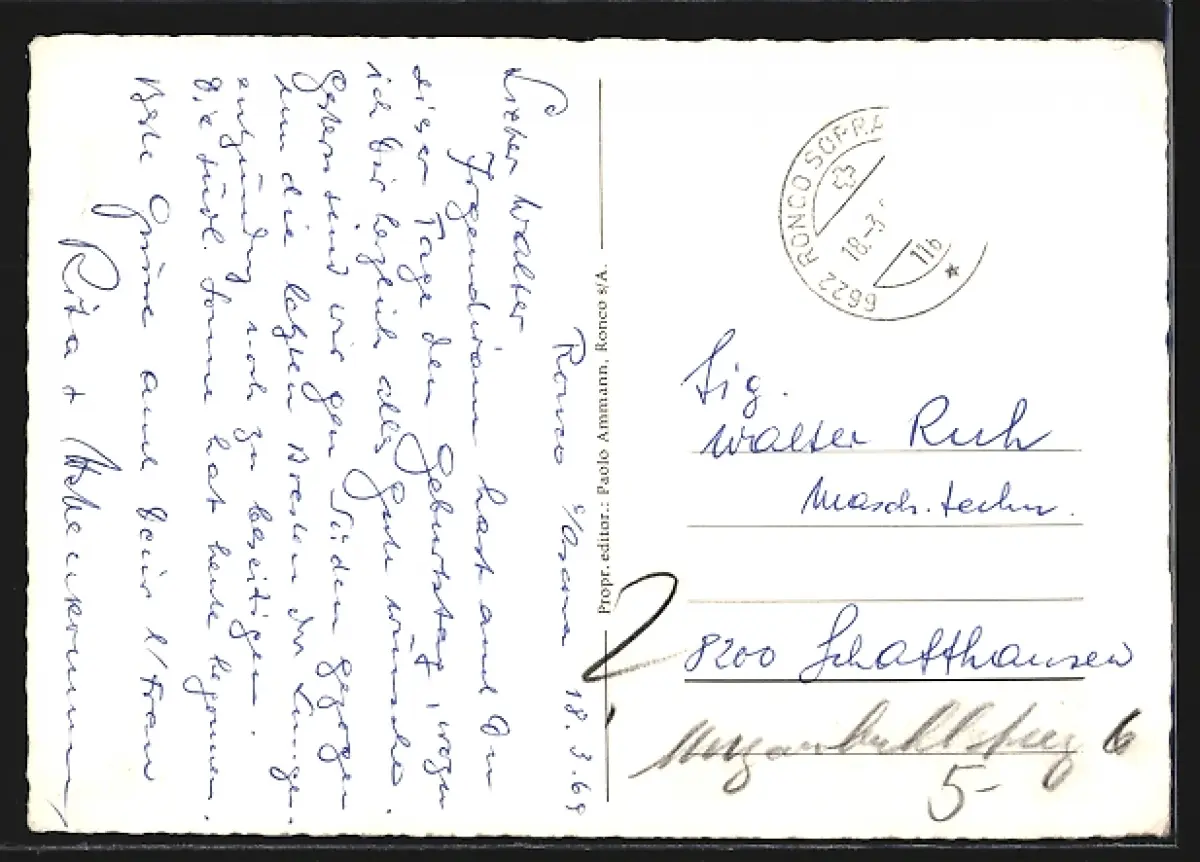 Ronco s/Ascona 18.3.69
Lieber Walter
Irgendwann hast auch Du
dieser Tage den Geburtstag, wozu
ich Dir herzlich alles Gute wünsche.
Gestern sind wir gen Süden gezogen
um die letzten Bresten der Lungen-
entzündung noch zu beseitigen.
Die südl. Sonne hat heute begonnen.
Beste Grüsse auch Deiner l/Frau
Rita +
Propr. editor.: Paolo Ammann, Ronco s/A.
6622 RONCO SOPRA
18.-3.
11b
Sig.
Walter Ruh
Masch. techn.
8200 Schaffhausen
6
5-